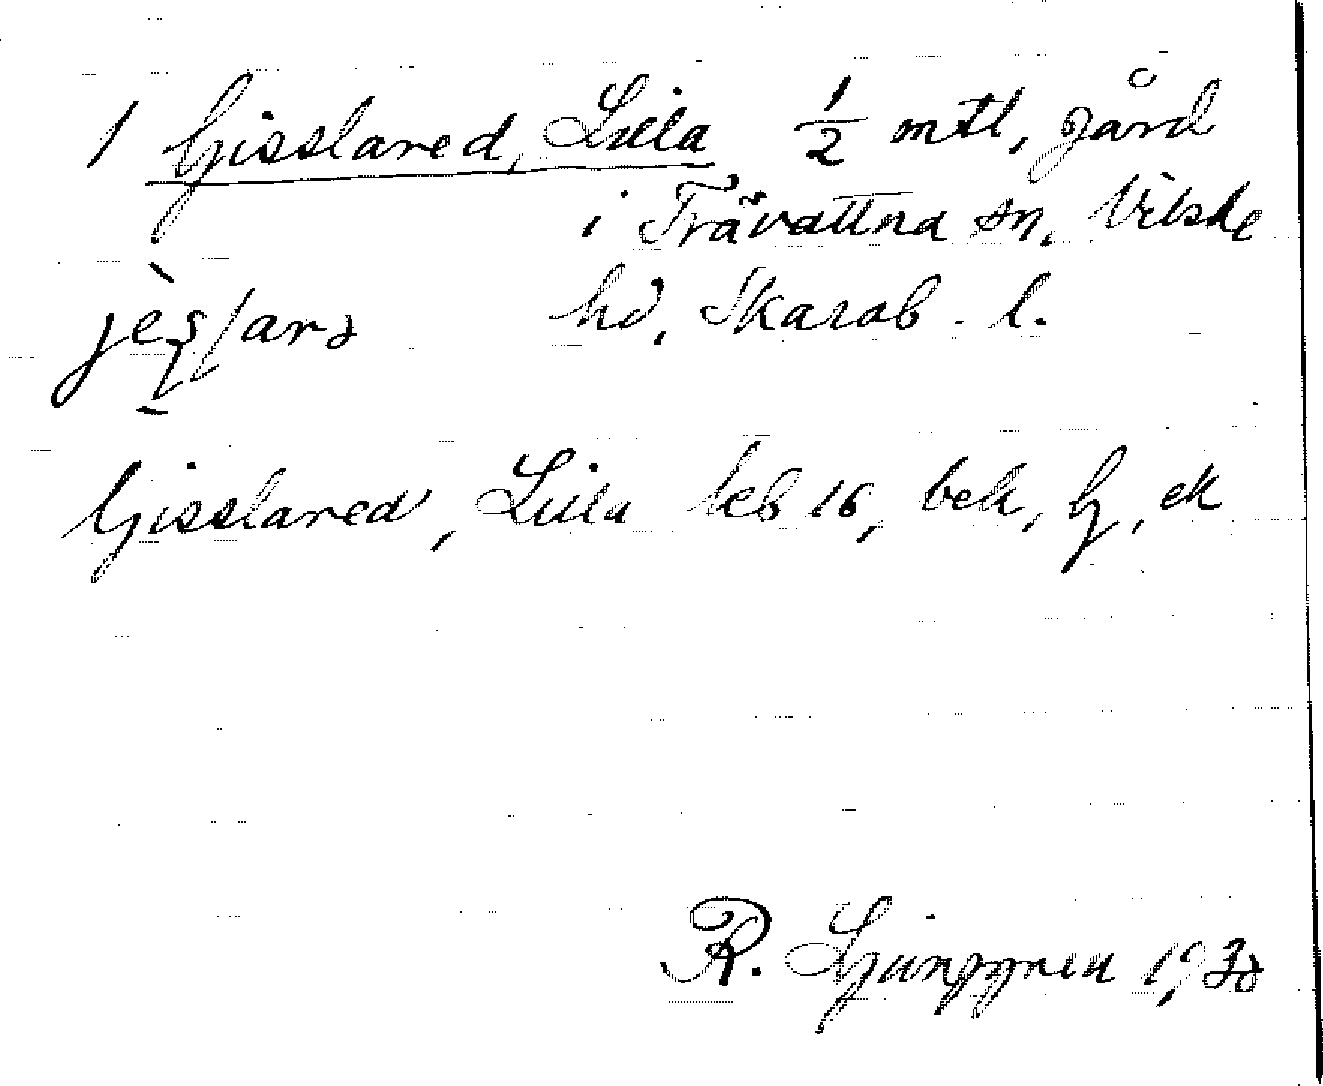 1 Gisslared, Lilla 1/2 mtl, gård
i Trävattna sn, Vilske
hd, Skarab. l.
Gisslared, Lilla keb 16, bek, G, ek
R. Ljunggren 1930